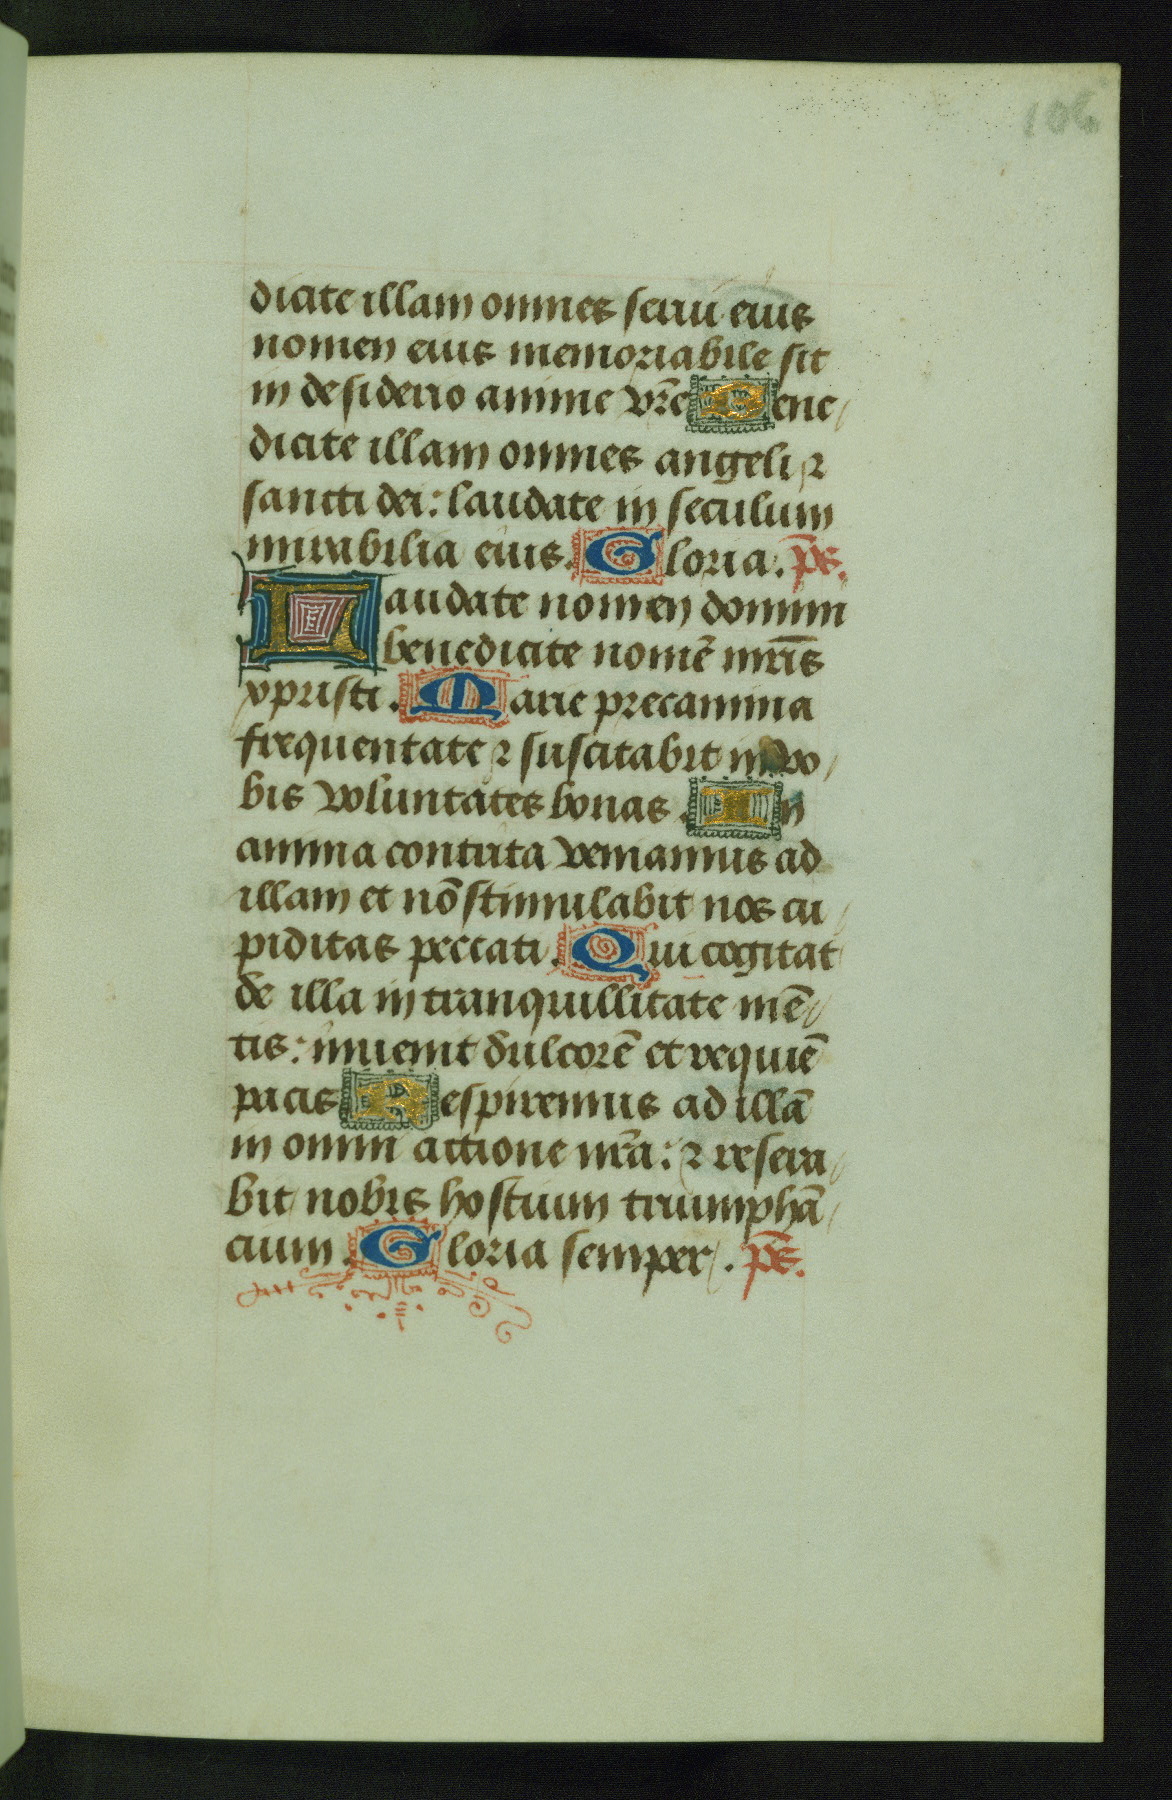 106
dicite illam omnes serui eius
nomen eius memoriabile sit
in desiderio anime vr̄e Bene/
dicite illam omnes angeli ⁊
sancti dei: laudate in seculum
mirabilia eius. Gloria. ps̄.
Laudate nomen domini
benedicite nomē mr̄is
xpristi. Marie precamina
frequentate ⁊ suscitabit in vo/
bis voluntates bonas. In
anima contrita veniamus ad
illam et nō stimulabit nos cu/
piditas peccati. Qui cogitat
de illa in tranquillitate mē/
tis: inueniet dulcorē et requiē
pacis Respiremus ad illā
in omni actione nr̄a: ⁊ resera/
bit nobis hostium triumphā/
cium. Gloria semper. ps̄.